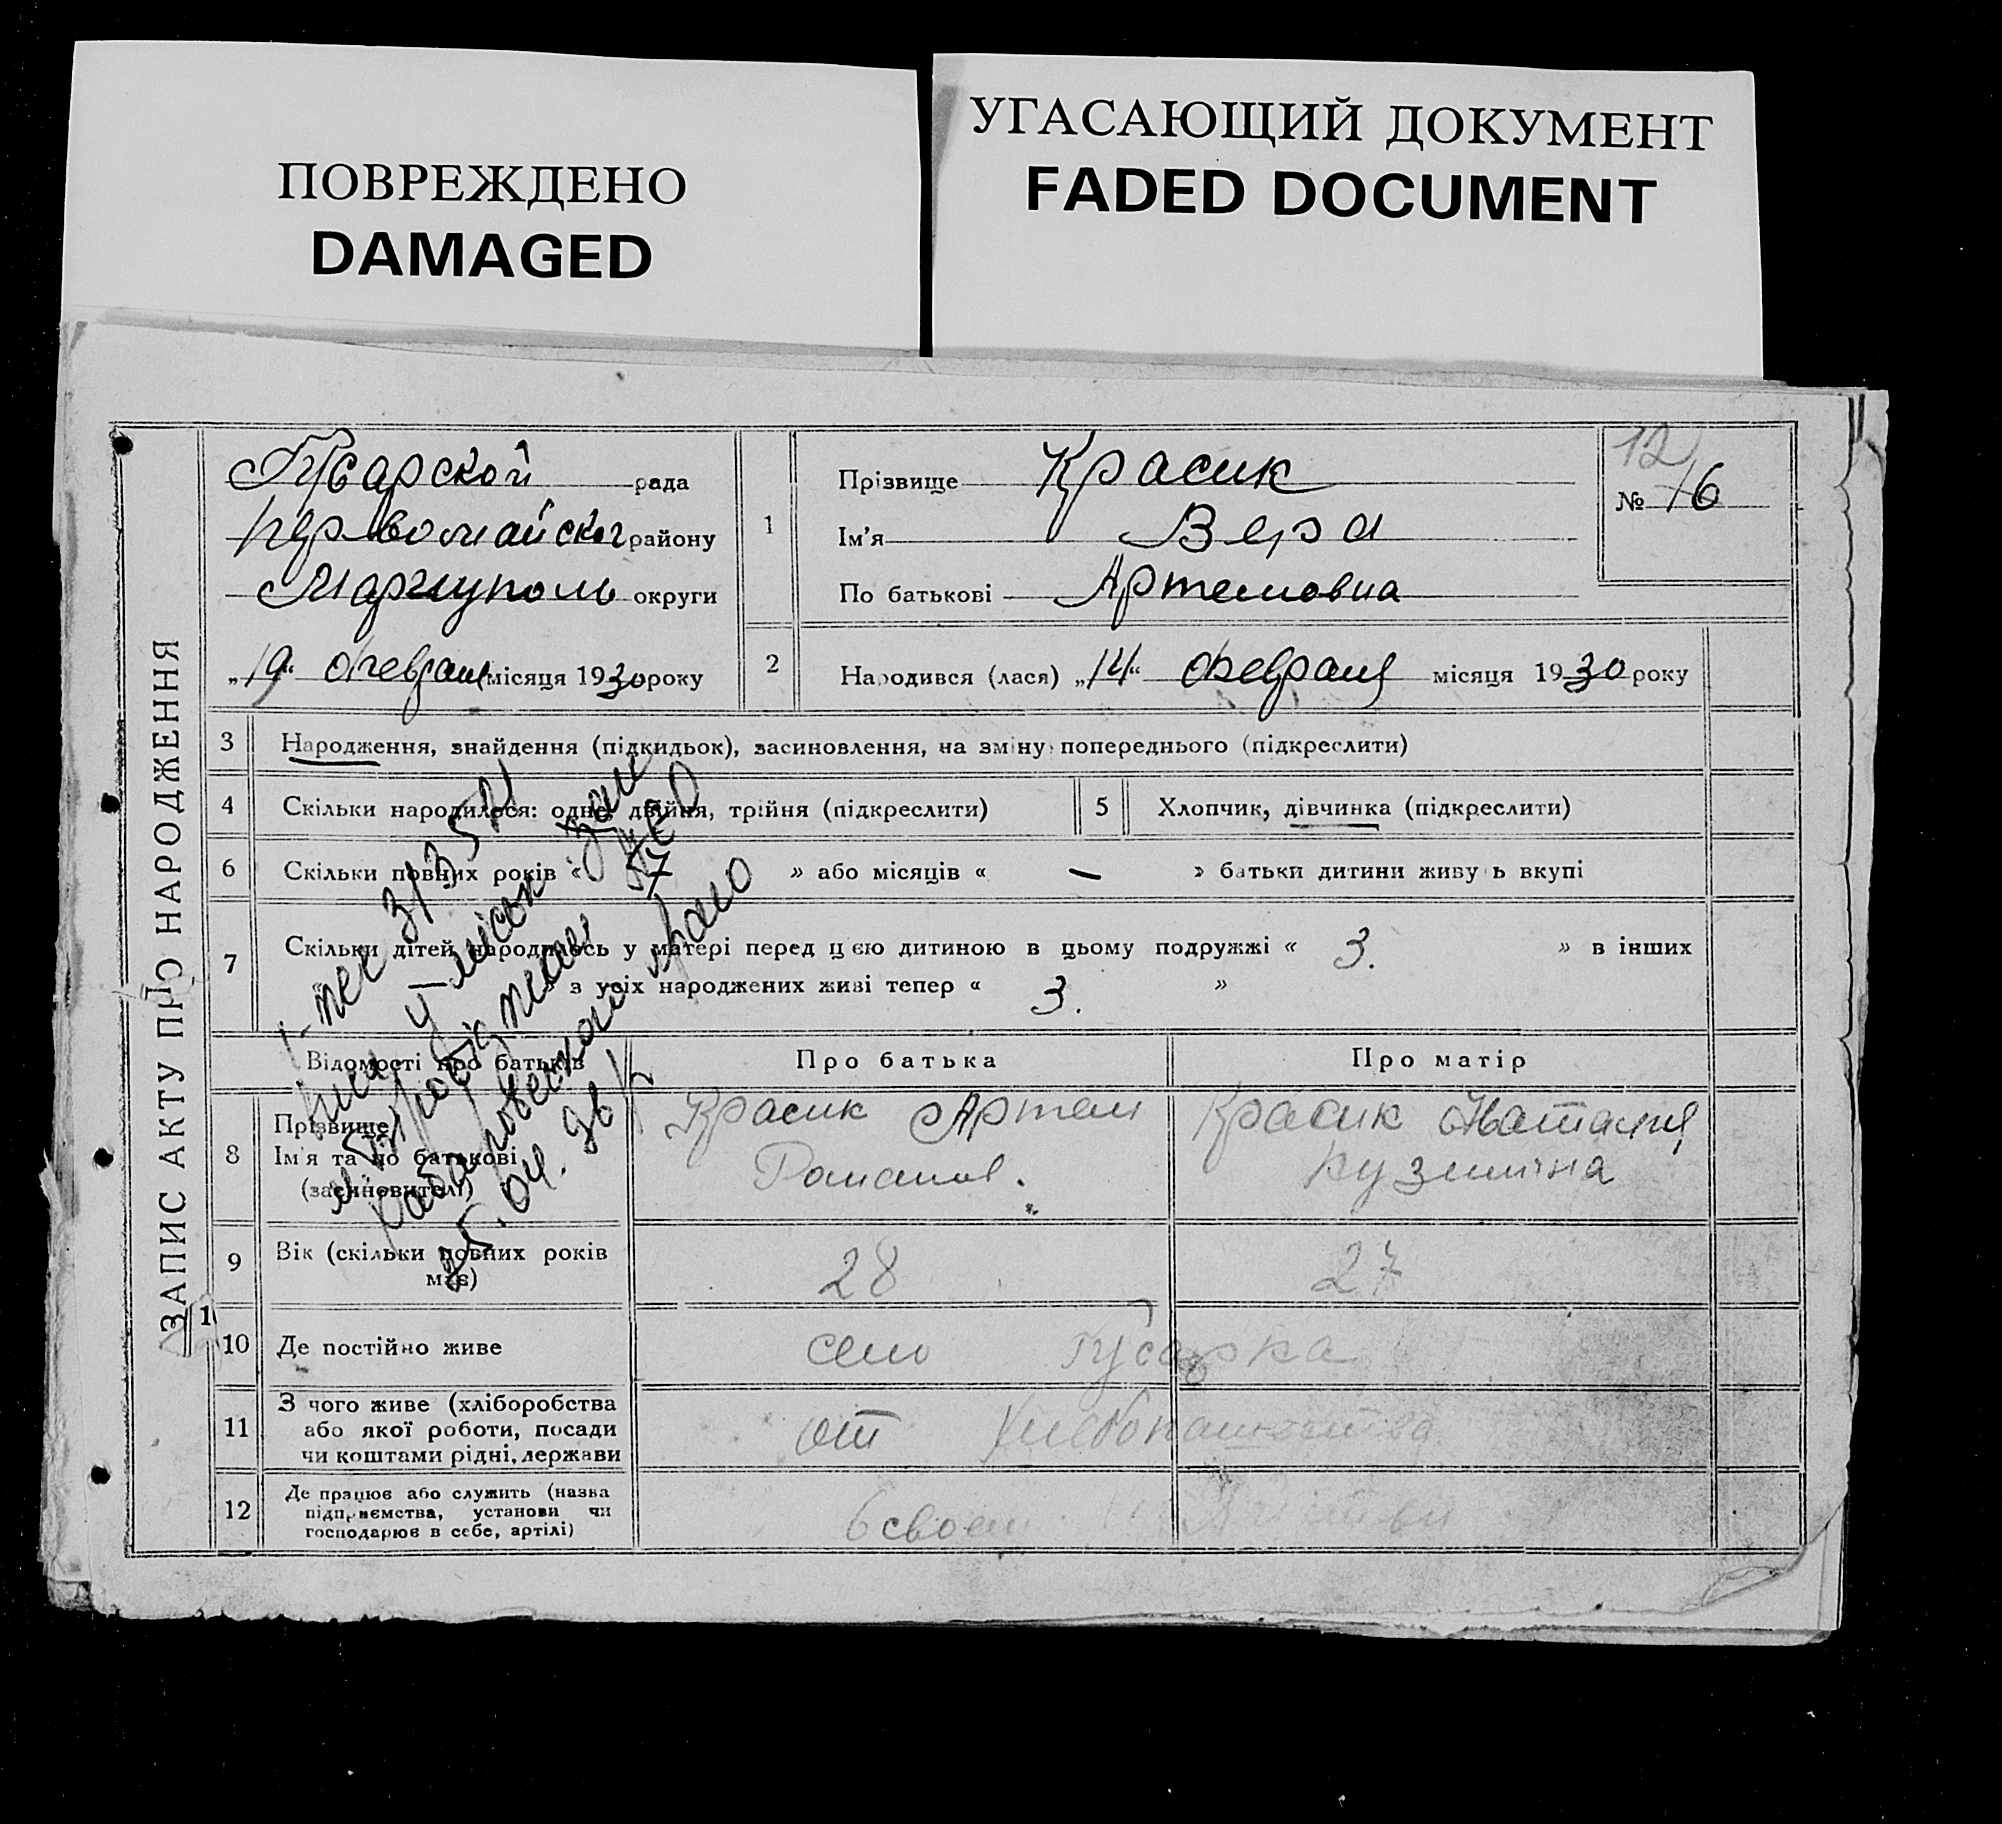 ПОВРЕЖДЕНО
DAMAGED
УГАСАЮЩИЙ ДОКУМЕНТ
FADED DOCUMENT
ЗАПИС АКТУ ПРО НАРОДЖЕННЯ
Гусарской рада
первомайског району
Мариуполь округи
„19“ февраля місяця 1930 року
1
Прізвище Красик
Ім'я Вера
По батькові Артемовна
12
№ 16
2
Народився (лася) „14“ февраля місяця 1930 року
3 Народження, знайдення (підкидьок), засиновлення, на зміну попереднього (підкреслити)
4 Скільки народилося: одно, двійня, трійня (підкреслити)
5 Хлопчик, дівчинка (підкреслити)
6 Скільки повних років « 7 » або місяців « — » батьки дитини живуть вкупі
7 Скільки дітей народилось у матері перед цією дитиною в цьому подружжі « 3. » в інших
з усіх народжених живі тепер « 3. »
25.04.96
Відомості про батьків
Про батька
Про матір
8 Прізвище
Ім'я та по батькові
(засиновителі)
Красик Артем
Романов.
Красик Наталия
Кузминна
9 Вік (скільки повних років має)
28
27
1
10 Де постійно живе
село Гусарка
11 З чого живе (хліборобства
або якої роботи, посади
чи коштами рідні, держави
от хлебопашества
12 Де працює або служить (назва
підприємства, установи чи
господарює в себе, артілі)
в своем